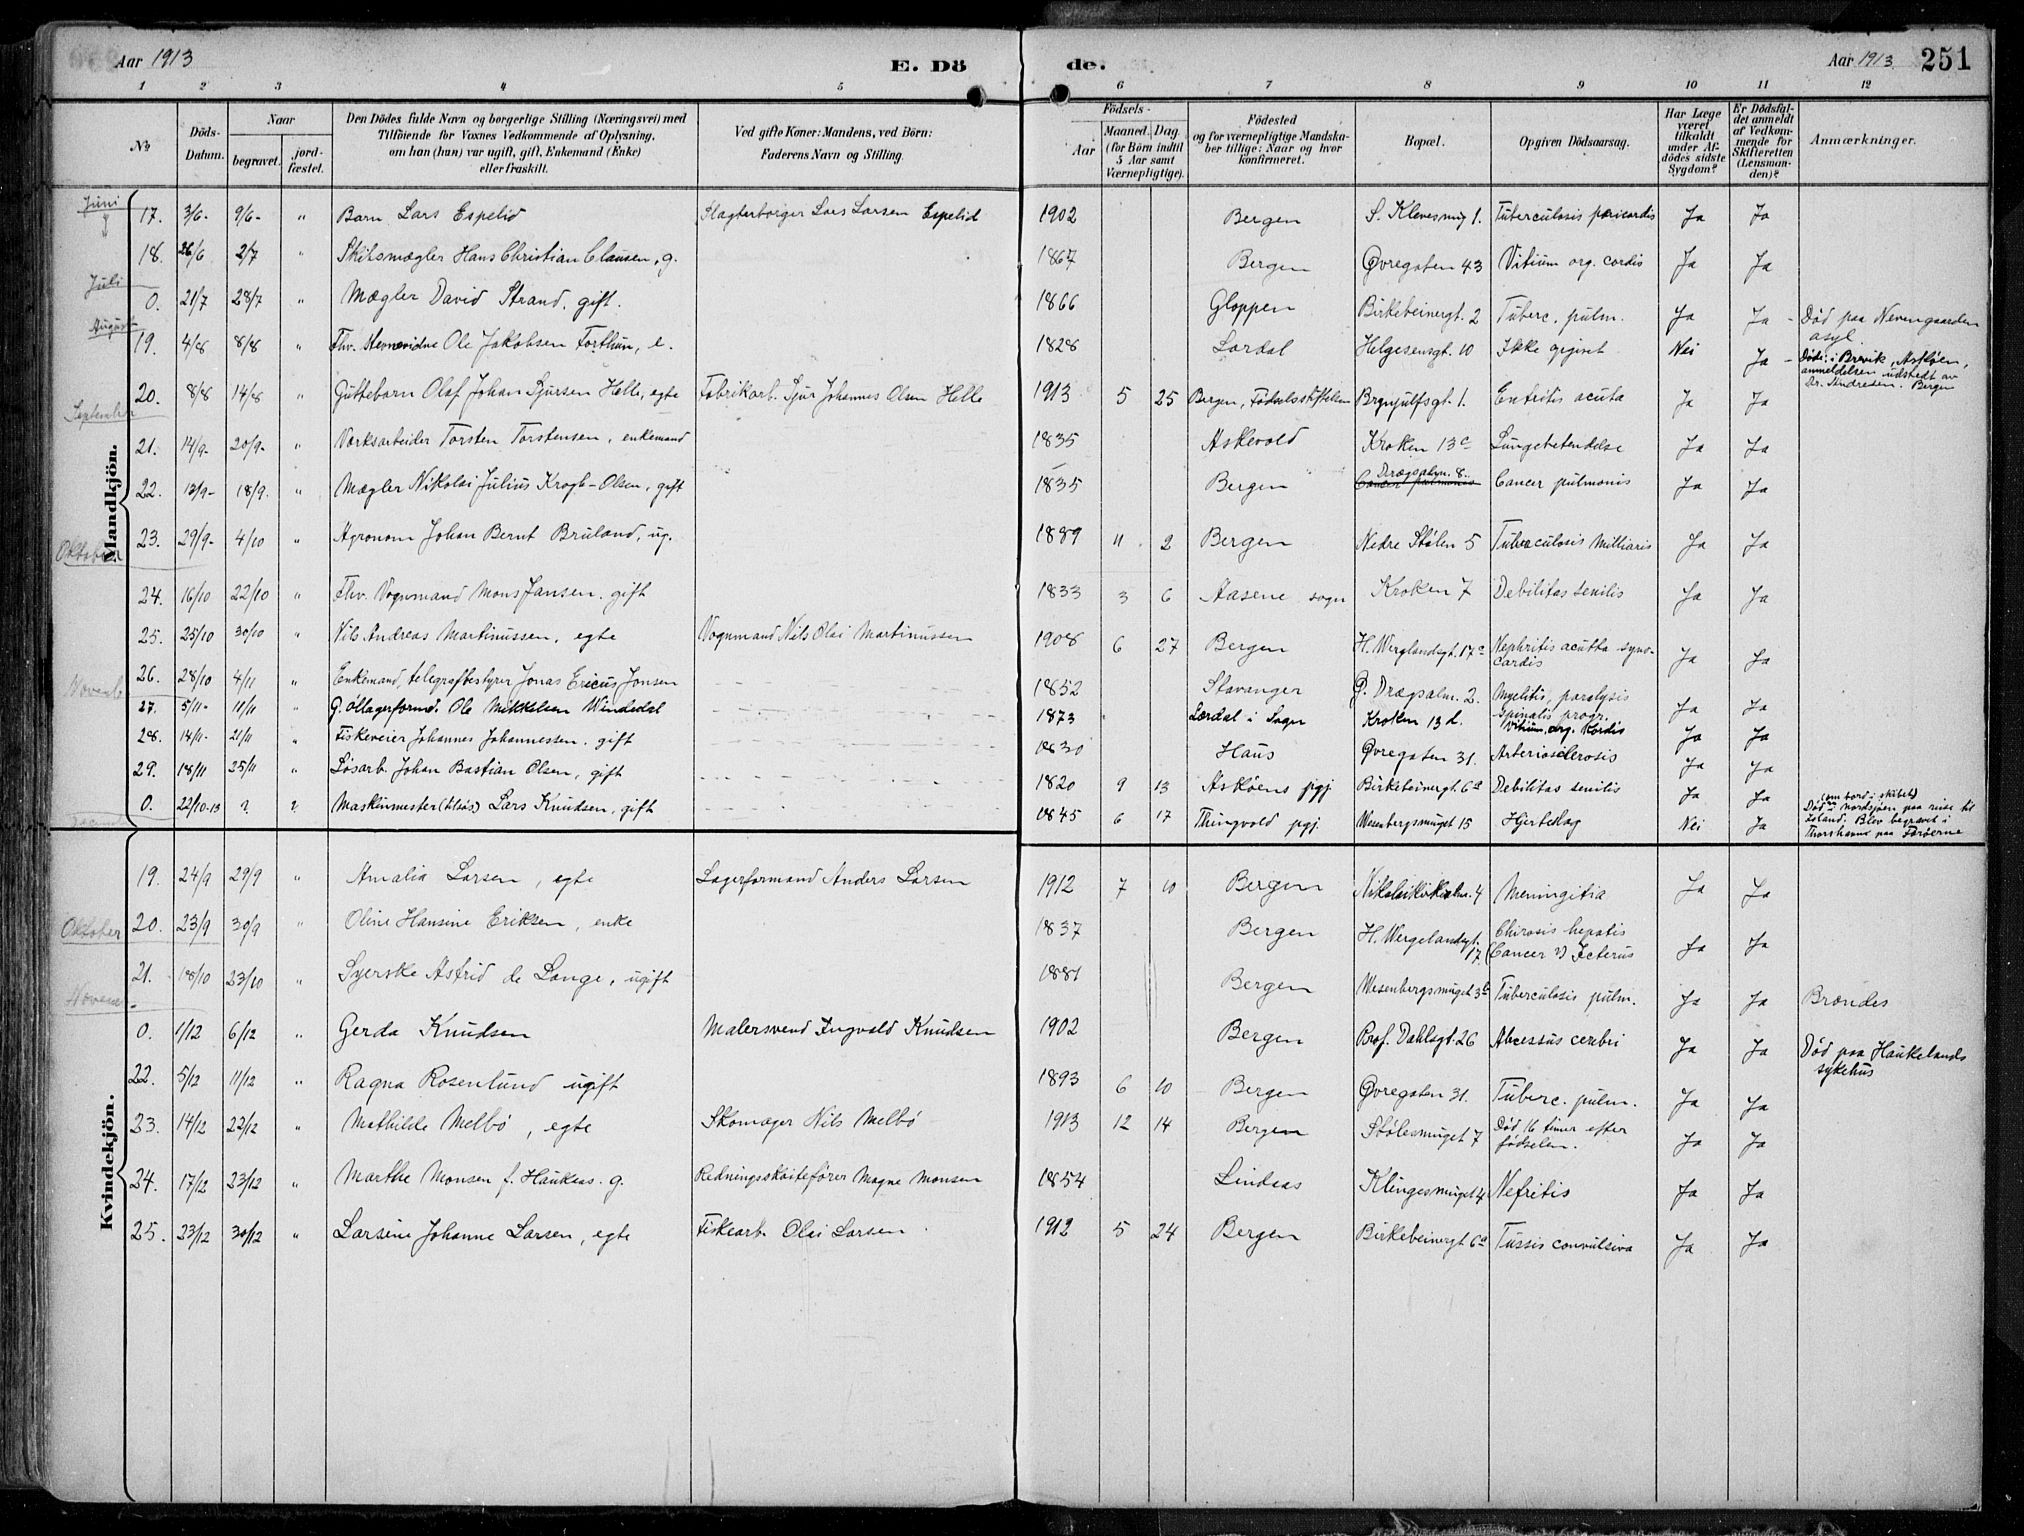 Aar 1913 E. Dö
de. Aar 1913 251
1 2 3 4 5
6 7 8 9 10 11 12
№
Döds-Datum.
Naar
begravet.
jord-fæstet.
Den Dödes fulde Navn og borgerlige Stilling (Næringsvei) med
Tilföiende for Voxnes Vedkommende af Oplysning,
om han (hun) var ugift, gift, Enkemand (Enke)
eller fraskilt.
Ved gifte Koner: Mandens, ved Börn:
Faderens Navn og Stilling.
Födsels-
Aar
Maaned. Dag
(for Börn indtil
5 Aar samt
Værnepligtige).
Födested
og for værnepligtige Mandska-
ber tillige: Naar og hvor
konfirmeret.
Bopæl.
Opgiven Dödsaarsag.
Har Læge
været
tilkaldt
under Af-
dödes sidste
Sygdom?
Er Dödsfal-
det anmeldt
af Vedkom-
mende for
Skifteretten
(Lensman-
den)?
Anmærkninger.
Mandkjön.
Juni
17. 3/6- 9/6- " Barn Lars Espelid Slagterborger Lars Larsen Espelid 1902 Bergen S. Klevesmug 1. Tuberculosis pericardis Ja Ja
18. 26/6 2/7 " Skibsmægler Hans Christian Clausen, g. 1867 Bergen Øvregaten 43 Vitium org. cordis Ja Ja
Juli
0. 21/7 28/7 " Mægler David Strand, gift. 1866 Gloppen Birkebeinergt. 2 Tuberc. pulm. Ja Ja - Död paa Nevengaarden asyl.
August
19. 4/8 8/8 " Fhv. Stevnevidne Ole Jakobsen Forthun, e. 1828 Lærdal Helgesensgt. 10 Ikke opgivet Nei Ja - Döde i Brevik, Askøen, anmeldelsen udstedt av Dr. Andresen. Bergen
20. 8/8 14/8 " Guttebarn Olaf Johan Sjursen Helle, egte Fabrikarb. Sjur Johannes Olsen Helle 1913 5 25 Bergen, Födselsstiftelsen Brynjulfsgt. 1. Entritis acuta Ja Ja
September
21. 14/9- 20/9- " Værksarbeider Torsten Torstensen, enkemand 1835 Askevold Kroken 13c Lungebetendelse Ja Ja
22. 13/9- 18/9. " Mægler Nikolai Julius Krogh-Olsen, gift 1835 Bergen Drægsalm. 8. Cancer pulmonis Cancer pulmonis Ja Ja
23. 29/9- 4/10 " Agronom Johan Bernt Bruland, ug. 1889 11 2 Bergen Nedre Stølen 5 Tuberculosis Milliaris Ja Ja
Oktober
24. 16/10 22/10 " Fhv. Vognmand Mons Jansen. gift 1833 3 6 Aasene sogn Kroken 7 Debilitas senilis Ja Ja
25. 25/10 30/10 " Nils Andreas Martinussen, egte Vognmand Nils Olai Martinussen 1908 6 27 Bergen H. Werglandsgt. 17c Nephritis acutta syncardis Ja Ja
26. 28/10 4/11 " Enkemand, telegrafbestyrer Jonas Ericus Jonsen 1852 Stavanger G. Drægsalm. 2. Myelitis, paralysis spinalis progr. Ja Ja
Novemb
27. 5/11- 11/11 " G. öllagerformd. Ole Mikkelsen Windedal 1873 Lærdal i Sogn Kroken 13 d. Vitium org. Kordis Ja Ja
28. 14/11- 21/11 " Fiskeveier Johannes Johannessen. gift 1830 Haus Øvregaten 31. Arteriosclerosis Ja Ja
29. 18/11 25/11 " Løsarb. Johan Bastian Olsen, gift 1820 9 13 Asköens pgj. Birkebeinergt. 6a Debilitas senilis Ja Ja
0. 22/10-13 ? ? Maskinmester (tilsøs) Lars Knudsen, gift 1845 6 17 Thingvold pgj. Wesenbergsmuget 15 Hjerteslag Nei Ja (om bord i skibet) Död i Nordsjøen paa reise til Island. Blev begravet i Thorshavn paa Færøerne
Kvindekjön.
19. 24/9 29/9 " Amalia Larsen, egte Lagerformand Anders Larsen 1912 7 10 Bergen Nikolaikirkealm. 4 Meningitia Ja Ja
20. 23/9 30/9 " Oline Hansine Eriksen, enke 1837 Bergen H. Wergelandsgt. 17. Chirosis hepatis (Cancer ?) Icterus Ja Ja
Oktober
21. 18/10 23/10 " Syerske Astrid de Lange, ugift 1881 Bergen Wesenbergsmuget 3b Tuberculosis pulm. Ja Ja Brændes
Novem
0. 1/12 6/12 " Gerda Knudsen Malersvend Ingvald Knudsen 1902 Bergen Prof. Dahlsgt. 26 Abcessus cerebri Ja Ja Död paa Haukelands sykehus
22. 5/12 11/12 " Ragna Rosenlund ugift 1893 6 10 Bergen Øvregaten 31. Tuberc. pulm. Ja Ja
23. 14/12 22/12 " Mathilde Melbö, egte Skomager Nils Melbö 1913 12 14 Bergen Stölesmuget 7 Död 16 timer efter födselen. Ja Ja
24. 17/12 23/12 " Marthe Monsen f. Haukaas. g. Redningsskøitefører Magne Monsen 1854 Lindaas Klingesmuget 4 Nefritis Ja Ja
25. 23/12 30/12 " Larsine Johanne Larsen, egte Fiskearb. Olai Larsen 1912 5 24 Bergen Birkebeinergt 6a Tussis convulsiva Ja Ja